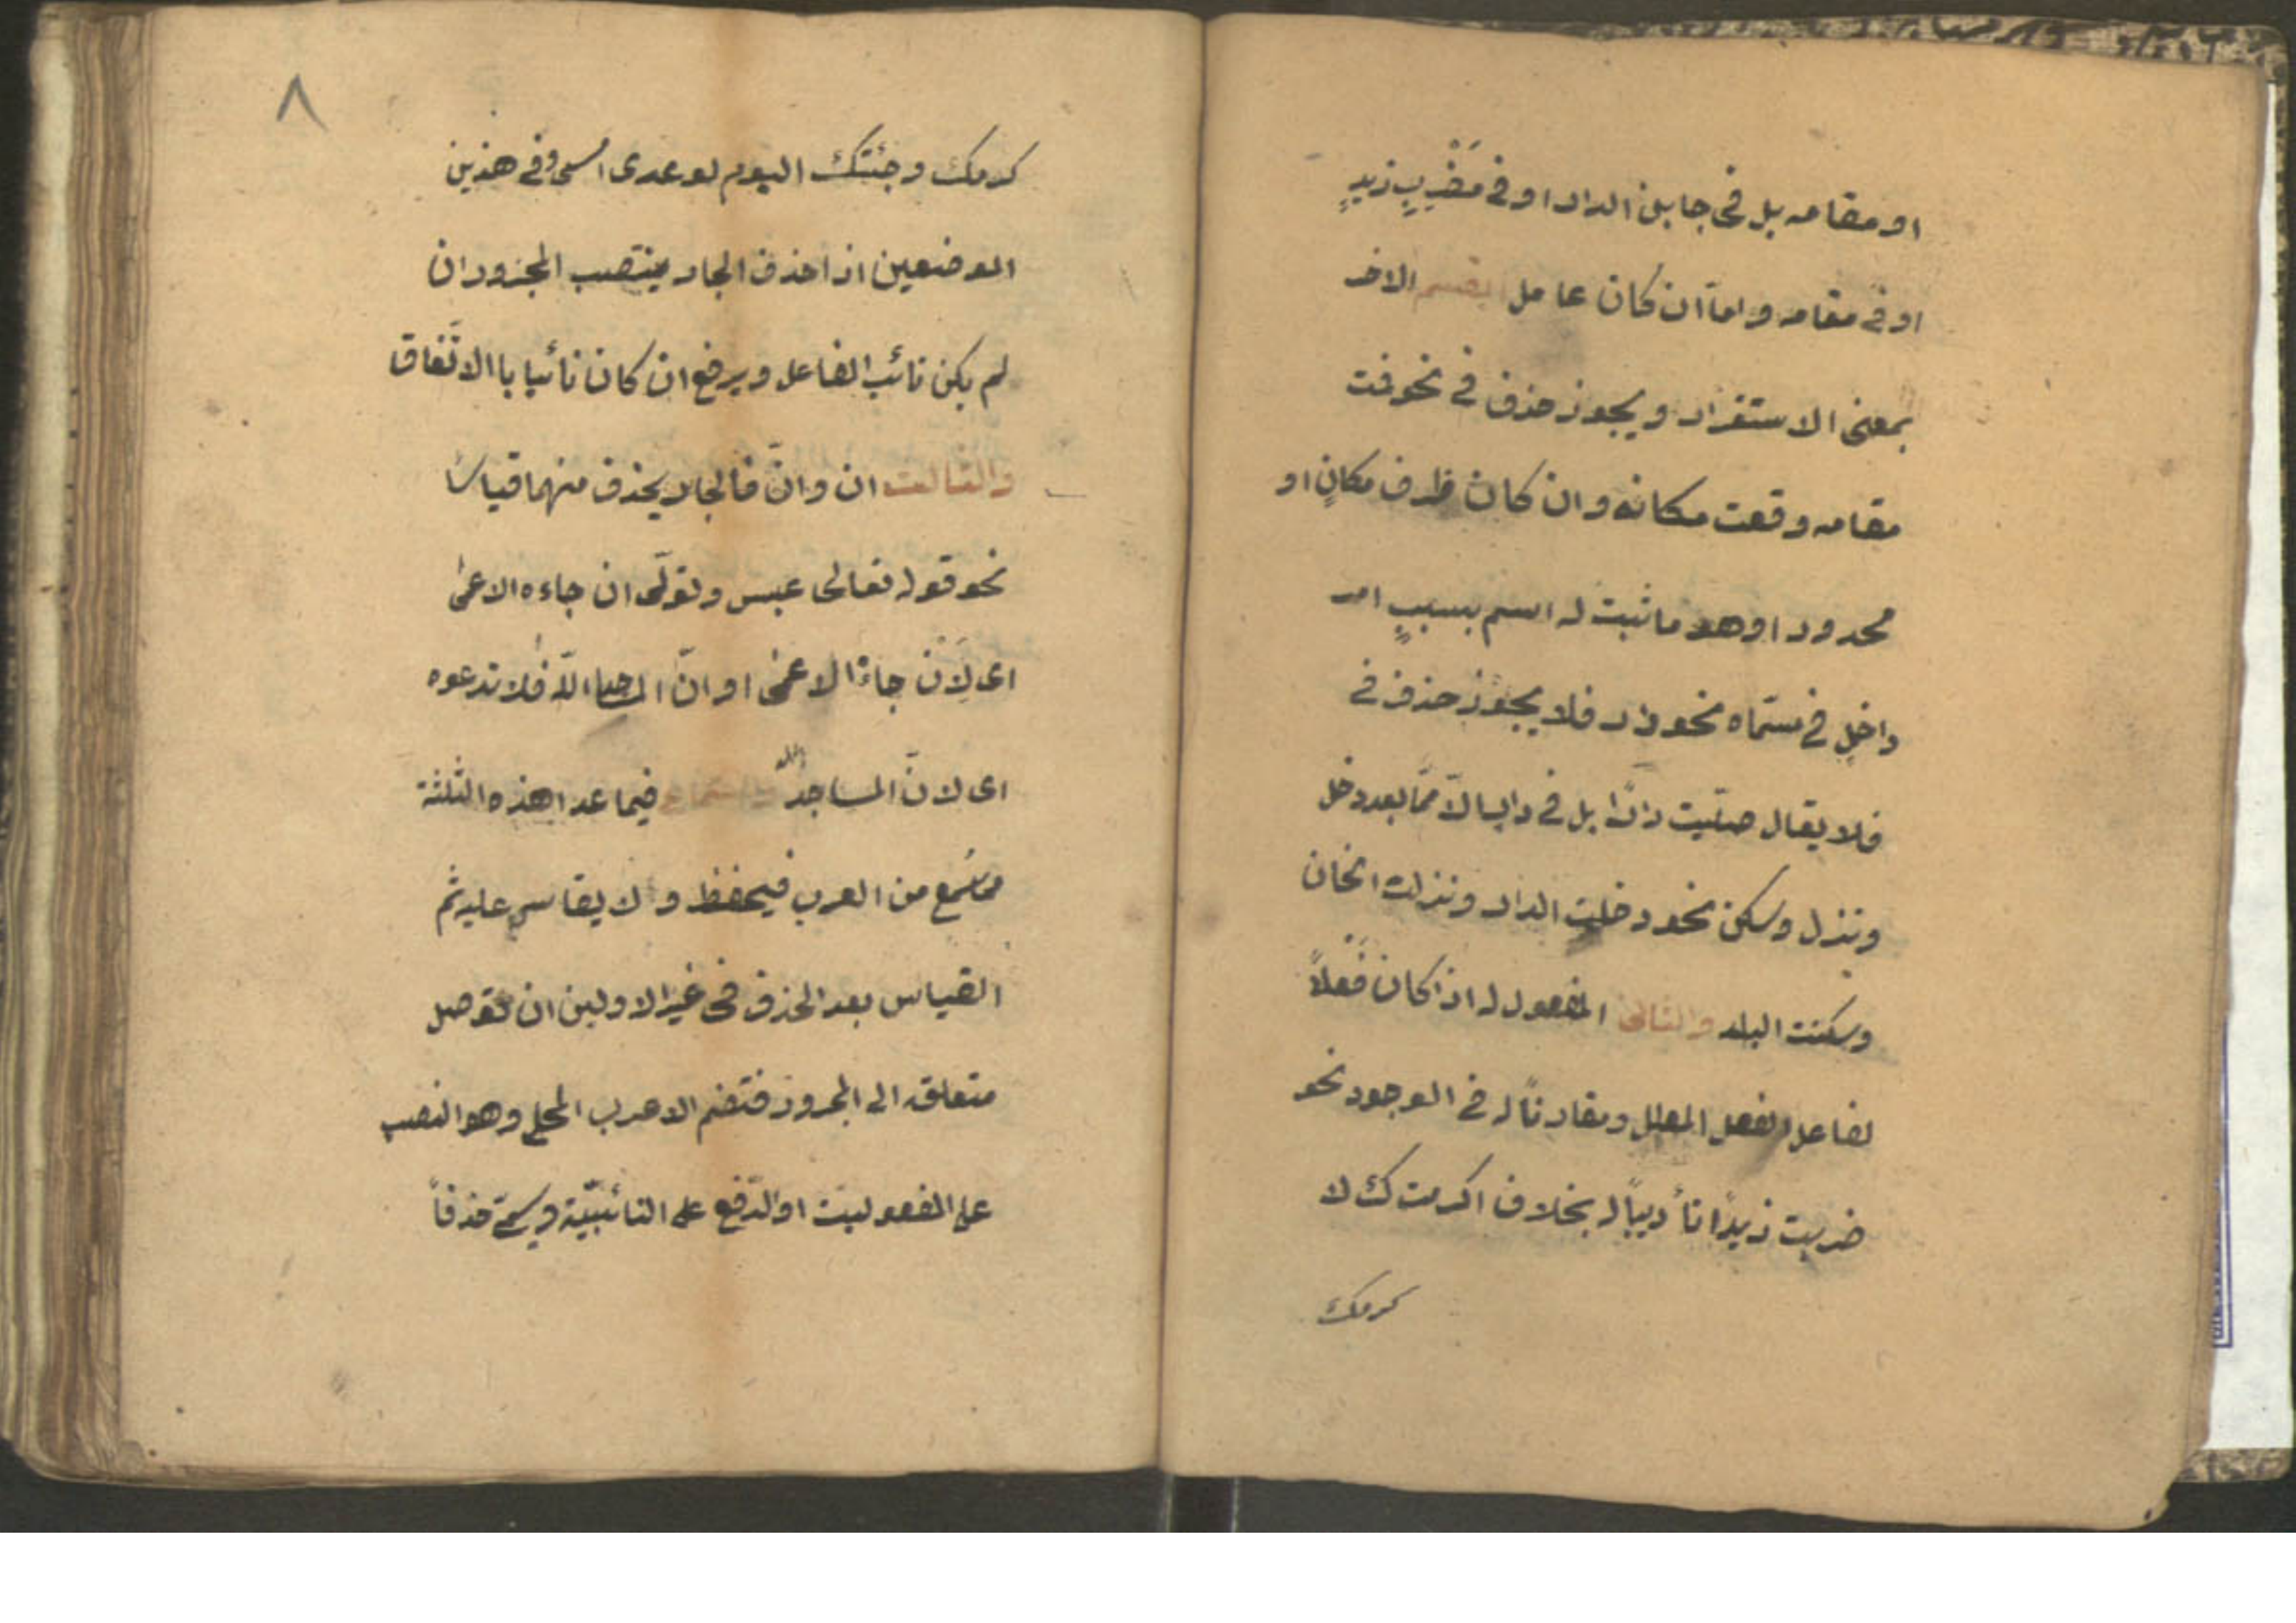 او مقامه بل فى جانب الدار او فى مَضْرِبِ زيدٍ
او فى مقامه واما ان كان عامل القسم الاخر
بمعنى الاستقرار ويجوز حذف فى نحو قمت
مقامه وقعت مكانه وان كان ظرف مكانٍ او
محدودا وهو ما ثبت له اسم بسببٍ امر
داخلٍ فى مسمّاه نحو دار فلا يجوز حذف فى
فلا يقال صلّيت دارًا بل فى دارٍ الّا ممّا بعد دخل
ونزل وسكن نحو دخلت الدار ونزلت الخان
وسكنت البلد والثانى المفعول له اذا كان فعلاً
لفاعل الفعل المعلل ومقارنًا له فى الوجود نحو
ضربت زيدًا تأديبًا له بخلاف اكرمتك لا
كرمك
٨
كرمك وجئتك اليوم لوعدى امس وفى هذين
الموضعين اذا حذف الجار ينتصب المجرور ان
لم يكن نائب الفاعل ويرفع ان كان نائبا باالاتّفاق
والثالث ان وانّ فالجار يحذف منهما قياسًا
نحو قوله تعالى عبس وتولّى ان جاءه الاعمى
اى لِاَنْ جاءه الاعمى او انّ المساجد لله فلا تدعوه
اى لانّ المساجد لله فيما عدا هذه الثلثة
مما سُمع من العرب فيحفظ ولا يقاس عليه ثم
القياس بعد الحذف فى غير الاولين ان توصل
متعلقه الى المجرور فتضم الاعرب المحلى وهو النصب
على المفعولية او الرّفع على النائبيّة ويسمّى حذفاً